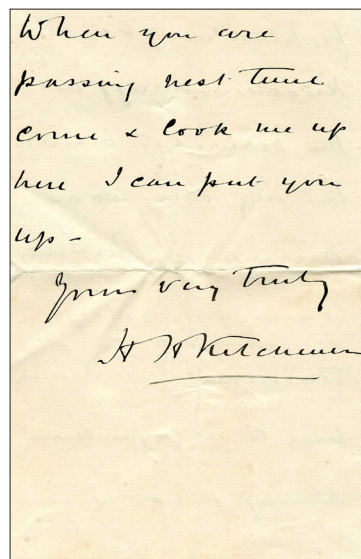 When you are
passing next time
come & look me up
here I can put you
up -
Yours very truly
H H Kitchener